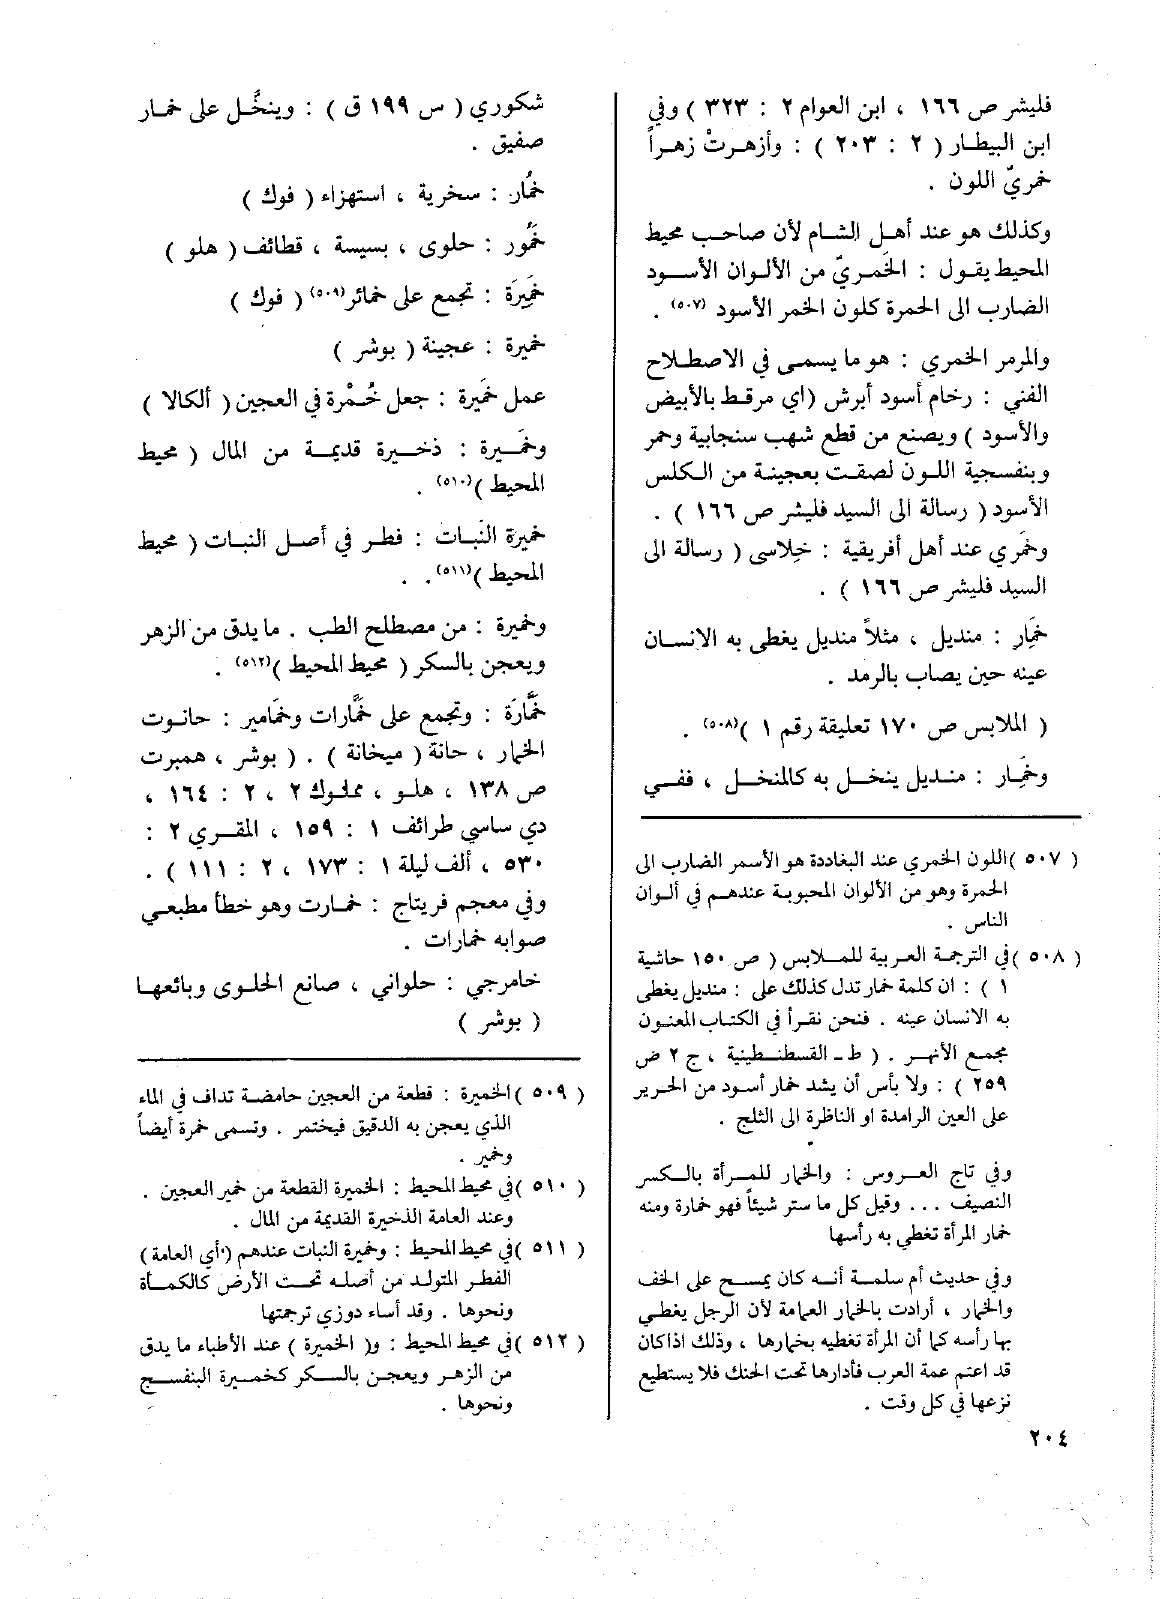 فليشر ص ١٦٦ ، ابن العوام ٢ : ٣٢٣ ) وفي
ابن البيطار ( ٢ : ٢٠٣ ) : وأزهرتْ زهراً
خمريّ اللون .
وكذلك هو عند أهل الشام لأن صاحب محيط
المحيط يقول : الخَمريّ من الألوان الأسود
الضارب الى الحمرة كلون الخمر الأسود (٥٠٧) .
والمرمر الخمري : هو ما يسمى في الاصطلاح
الفني : رخام أسود أبرش (اي مرقط بالأبيض
والأسود ) ويصنع من قطع شهب سنجابية وحمر
وبنفسجية اللون لصقت بعجينة من الكلس
الأسود ( رسالة الى السيد فليشر ص ١٦٦ ) .
وخمري عند أهل أفريقية : خِلاسى ( رسالة الى
السيد فليشر ص ١٦٦ ) .
خمَار : منديل ، مثلاً منديل يغطى به الانسان
عينه حين يصاب بالرمد .
( الملابس ص ١٧٠ تعليقة رقم ١ )(٥٠٨) .
وخمَار : منديل ينخل به كالمنخل ، ففي
( ٥٠٧ )اللون الخمري عند البغاددة هو الأسمر الضارب الى
الحمرة وهو من الألوان المحبوبة عندهم في ألوان
الناس .
( ٥٠٨ )في الترجمة العربية للملابس ( ص ١٥٠ حاشية
١ ) : ان كلمة خمار تدل كذلك على : منديل يغطى
به الانسان عينه . فنحن نقرأ في الكتاب المعنون
مجمع الأنهر . ( ط - القسطنطينية ، ج ٢ ص
٢٥٩ ) : ولا بأس أن يشد خمار أسود من الحرير
على العين الرامدة او الناظرة الى الثلج .
وفي تاج العروس : والخمار للمرأة بالكسر
النصيف ... وقيل كل ما ستر شيئاً فهو خمارة ومنه
خمار المرأة تغطي به رأسها
وفي حديث أم سلمة أنه كان يمسح على الخف
والخمار ، أرادت بالخمار العمامة لأن الرجل يغطي
بها رأسه كما أن المرأة تغطيه بخمارها ، وذلك اذا كان
قد اعتم عمة العرب فأدارها تحت الحنك فلا يستطيع
نزعها في كل وقت .
شكوري ( س ١٩٩ ق ) : وينخَّل على خمار
صفيق .
خمُار : سخرية ، استهزاء ( فوك )
خمَّور : حلوى ، بسيسة ، قطائف ( هلو )
خمَيرَة : تجمع على خمائر(٥٠٩) ( فوك )
خميرة : عجينة ( بوشر )
عمل خمَيرة : جعل خُمْرة في العجين ( ألكالا )
وخمَيرة : ذخيرة قديمة من المال ( محيط
المحيط )(٥١٠) .
خميرة النَبات : فطر في أصل النبات ( محيط
المحيط )(٥١١). .
وخميرة : من مصطلح الطب . ما يدق من الزهر
ويعجن بالسكر ( محيط المحيط )(٥١٢) .
خمَّارَة : وتجمع على خمَّارات وخمَامير : حانوت
الخمار ، حانة ( ميخانة ) . ( بوشر ، همبرت
ص ١٣٨ ، هلو ، مملوك ٢ ، ٢ : ١٦٤ ،
دي ساسي طرائف ١ : ١٥٩ ، المقري ٢ :
٥٣٠ ، ألف ليلة ١ : ١٧٣ ، ٢ : ١١١ ) .
وفي معجم فريتاج : خمارت وهو خطأ مطبعي
صوابه خمارات .
خامرجي : حلواني ، صانع الحلوى وبائعها
( بوشر )
( ٥٠٩ )الخميرة : قطعة من العجين حامضة تداف في الماء
الذي يعجن به الدقيق فيختمر . وتسمى خمرة أيضاً
وخمير .
( ٥١٠ )في محيط المحيط : الخميرة القطعة من خمير العجين .
وعند العامة الذخيرة القديمة من المال .
( ٥١١ )في محيط المحيط : وخميرة النبات عندهم (أي العامة)
الفطر المتولد من أصله تحت الأرض كالكمأة
ونحوها . وقد أساء دوزي ترجمتها
( ٥١٢ )في محيط المحيط : و( الخميرة ) عند الأطباء ما يدق
من الزهر ويعجن بالسكر كخميرة البنفسج
ونحوها .
٢٠٤